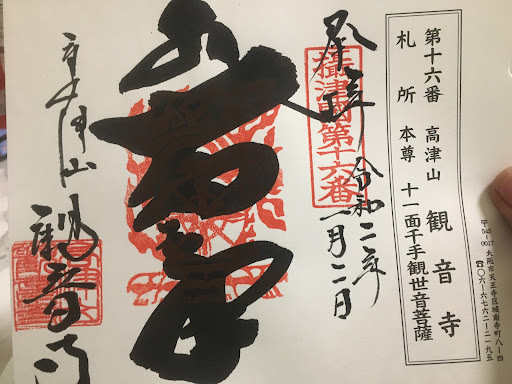 第十六番 高津山 観音寺
札所 本尊 十一面千手観世音菩薩
〒543-0017 大阪市天王寺区城南寺町八ー四
☎〇六ー六七六二ー二一九五
奉拝 令和二年
一月二日
攝津國第十六番
高津山
観音寺